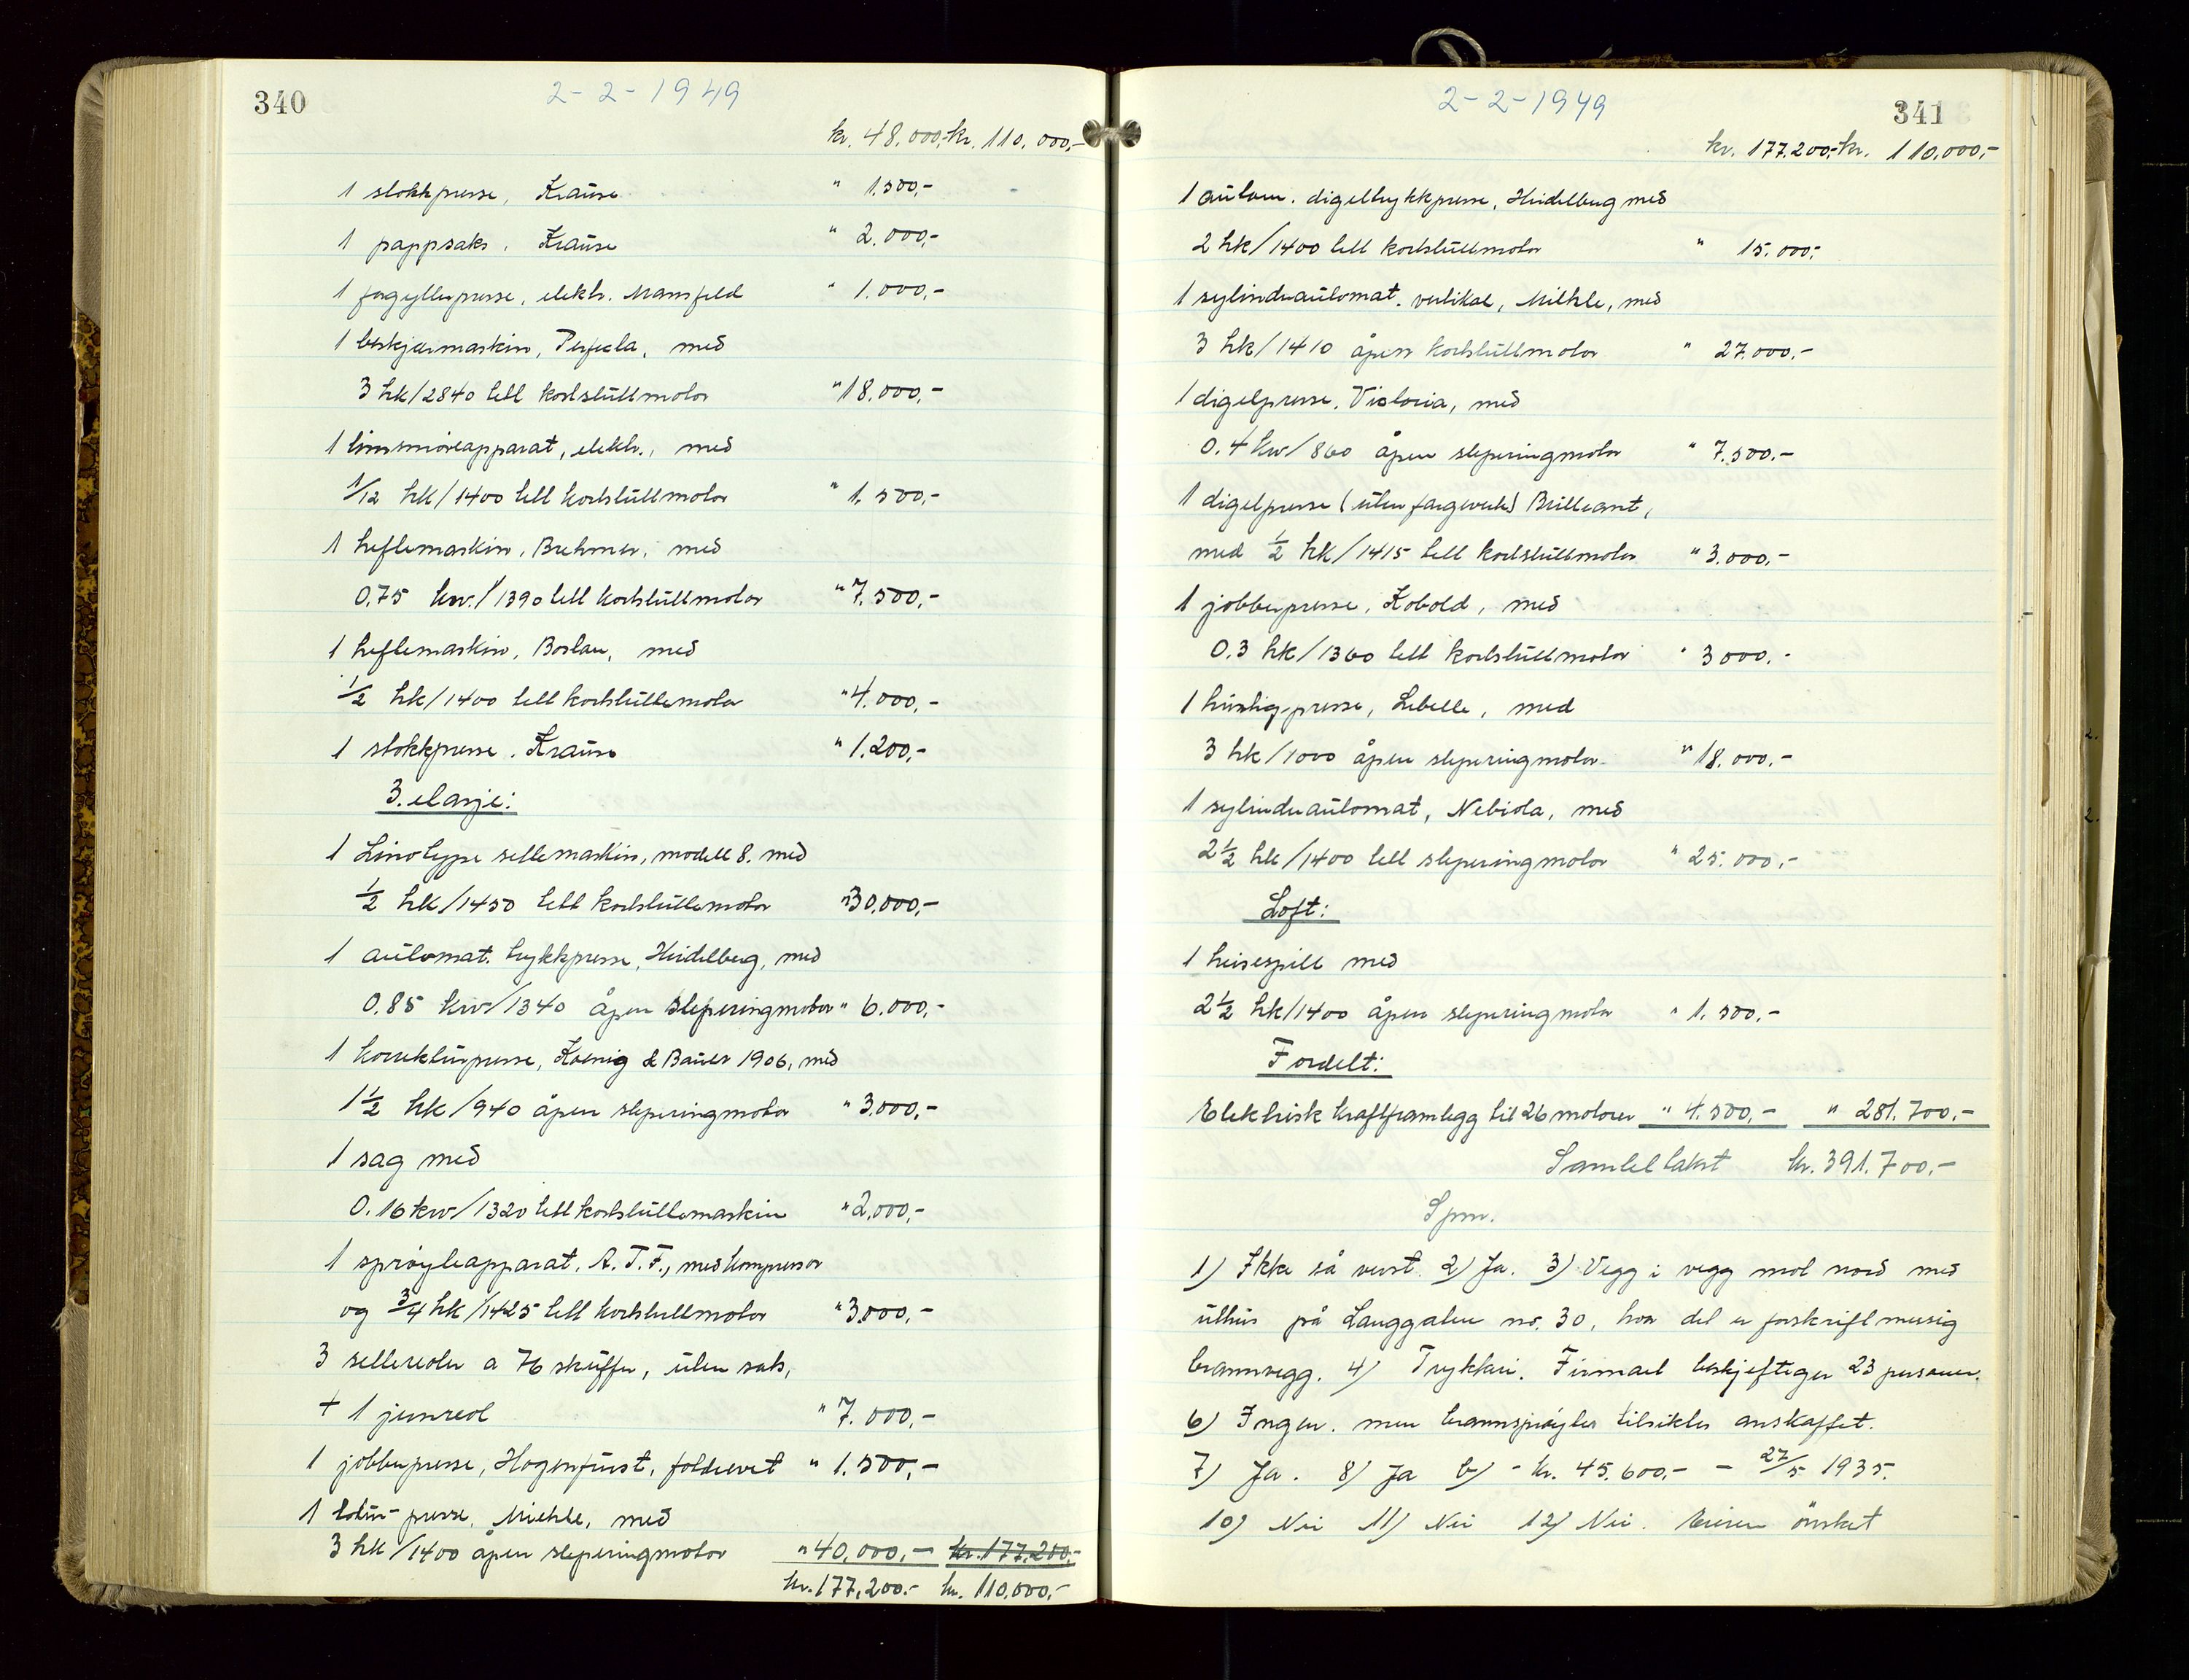 340
2-2-1949
kr. 48.000,- kr. 110.000,-
1 stokkpresse, Krause " 1.500,-
1 pappsaks, Krause " 2.000,-
1 forgyllerpresse, elektr. Mansfeld " 1.000,-
1 beskjærmaskin, Perfecta, med
3 hk/2840 tett kortsluttmotor " 18.000,-
1 limsmøreapparat, elektr., med
1/12 hk/1400 tett kortsluttmotor " 1.500,-
1 heftemaskin, Brehmer, med
0,75 kw./1390 tett kortsluttmotor " 7.500,-
1 heftemaskin, Boston, med
1/2 hk/1400 tett kortsluttmotor " 4.000,-
1 stokkpresse, Krause " 1.200,-
3. etasje:
1 Linotype settemaskin, modell 8, med
1/2 hk/1450 tett kortsluttmotor " 30.000,-
1 automat. trykkpresse, Heidelberg, med
0.85 kw/1340 åpen sleperingmotor " 6.000,-
1 korrekturpresse, Koenig & Bauer 1906, med
1 1/2 hk/940 åpen sleperingmotor " 3.000,-
1 sag med
0.16 kw/1320 tett kortsluttmaskin " 2.000,-
1 sprøyteapparat, A.T.F., med kompressor
og 3/4 hk/1425 tett kortsluttmotor " 3.000,-
3 settereoler a 76 skuffer, uten sats,
+ 1 jernreol " 7.000,-
1 jobberpresse, Hogenfürst, fotdrevet " 1.500,-
1 presse, Miehle, med
3 hk/1400 åpen sleperingmotor " 40.000,- kr. 177.200,-
kr. 177.200.- kr. 110.000,-
2-2-1949
341
kr. 177.200,- kr. 110.000,-
1 autom. digeltrykkpresse, Heidelberg med
2 hk/1400 tett kortsluttmotor " 15.000,-
1 sylinderautomat. vertikal, Miehle, med
3 hk/1410 åpen kortsluttmotor " 27.000,-
1 digelpresse, Victoria, med
0.4 kw/860 åpen sleperingmotor " 7.500.-
1 digelpresse (uten fargeverk) Brilleant,
med 1/2 hk/1415 tett kortsluttmotor " 3.000,-
1 jobberpresse, Kobold, med
0.3 hk/1360 tett kortsluttmotor " 3000,-
1 hurtig-presse, Lebelle, med
3 hk/1000 åpen sleperingmotor " 18.000.-
1 sylinderautomat, Nebiola, med
2 1/2 hk/1400 tett sleperingmotor " 25.000,-
Loft:
1 heisespill med
2 1/2 hk/1400 åpen sleperingmotor " 1.500,-
Fordelt:
Elektrisk kraftframlegg til 26 motorer " 4.500,- " 281.700,-
Samlet takst kr. 391.700.-
Spm.
1) Ikke så verst. 2) Ja. 3) Vegg i vegg mot nord med
uthus på Langgaten no. 30, hvor det er forskriftmessig
brannvegg. 4) Trykkeri. Firmaet beskjeftiger 23 personer.
6) Ingen, men brannsprøyter tilsiktes anskaffet.
7) Ja. 8) Ja b) - kr. 45.600,- - 27/5 1935.
10) Nei 11) Nei 12) Nei. Eieren ønsket